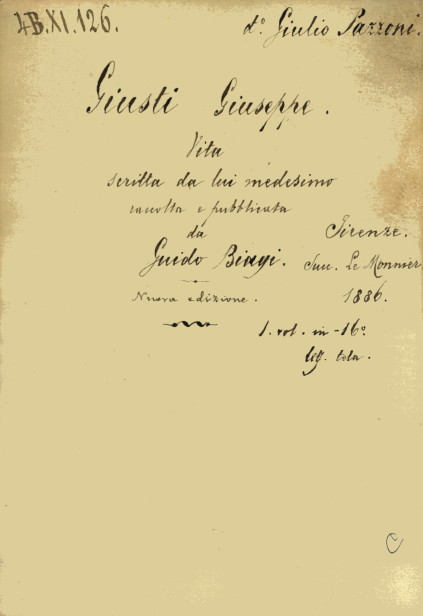 4B.XI.126.
d.º Giulio Pazzoni.
Giusti Giuseppe.
Vita
scritta da lui medesimo
raccolta e pubblicata
da
Guido Biagi.
Nuova edizione.
Firenze.
Succ. Le Monnier
1886.
1. vol. in-16º
leg. tela.